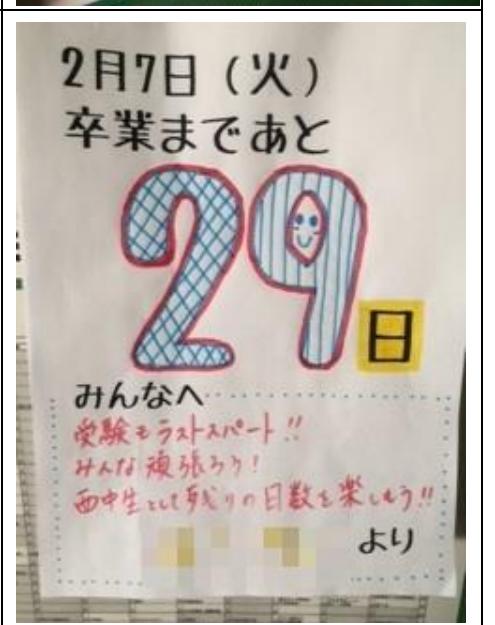 2月7日（火）
卒業まであと
29日
みんなへ
受験もラストスパート!!
みんな頑張ろう!
西中生として残りの日数を楽しもう!!
より